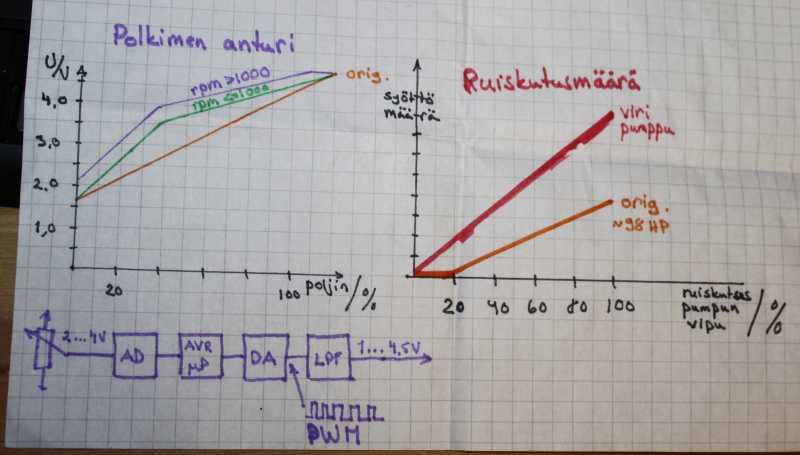 Polkimen anturi
U/V
4,0
3,0
2,0
1,0
rpm>1000
rpm<1000
orig.
20
100
poljin/%
Ruiskutusmäärä
syöttö
määrä
viri
pumppu
orig.
~98HP
20 40 60 80 100
ruiskutus
pumpun
vipu
/%
2...4V
AD
AVR
µP
DA
LPF
1...4,5V
PWM